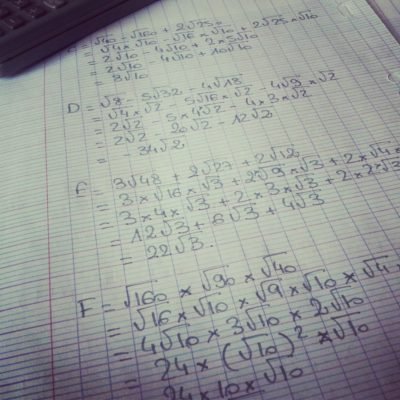 C = √40 - √160 + 2√250
= √4 × √10 - √16 × √10 + 2√25 × √10
= 2√10 - 4√10 + 2 × 5√10
= 2√10 - 4√10 + 10√10
= 8√10
D = √8 - 5√32 - 4√18
= √4 × √2 - 5√16 × √2 - 4√9 × √2
= 2√2 - 5 × 4√2 - 4 × 3√2
= 2√2 - 20√2 - 12√2
= - 34√2
E = 3√48 + 2√27 + 2√12
= 3 × √16 × √3 + 2√9 × √3 + 2 × √4 ×
= 3 × 4 × √3 + 2 × 3 × √3 + 2 × 2√3
= 12√3 + 6√3 + 4√3
= 22√3.
F = √160 × √90 × √40
= √16 × √10 × √9 × √10 × √4
= 4√10 × 3√10 × 2√10
= 24 × (√10)² × √10
= 24 × 10 × √10